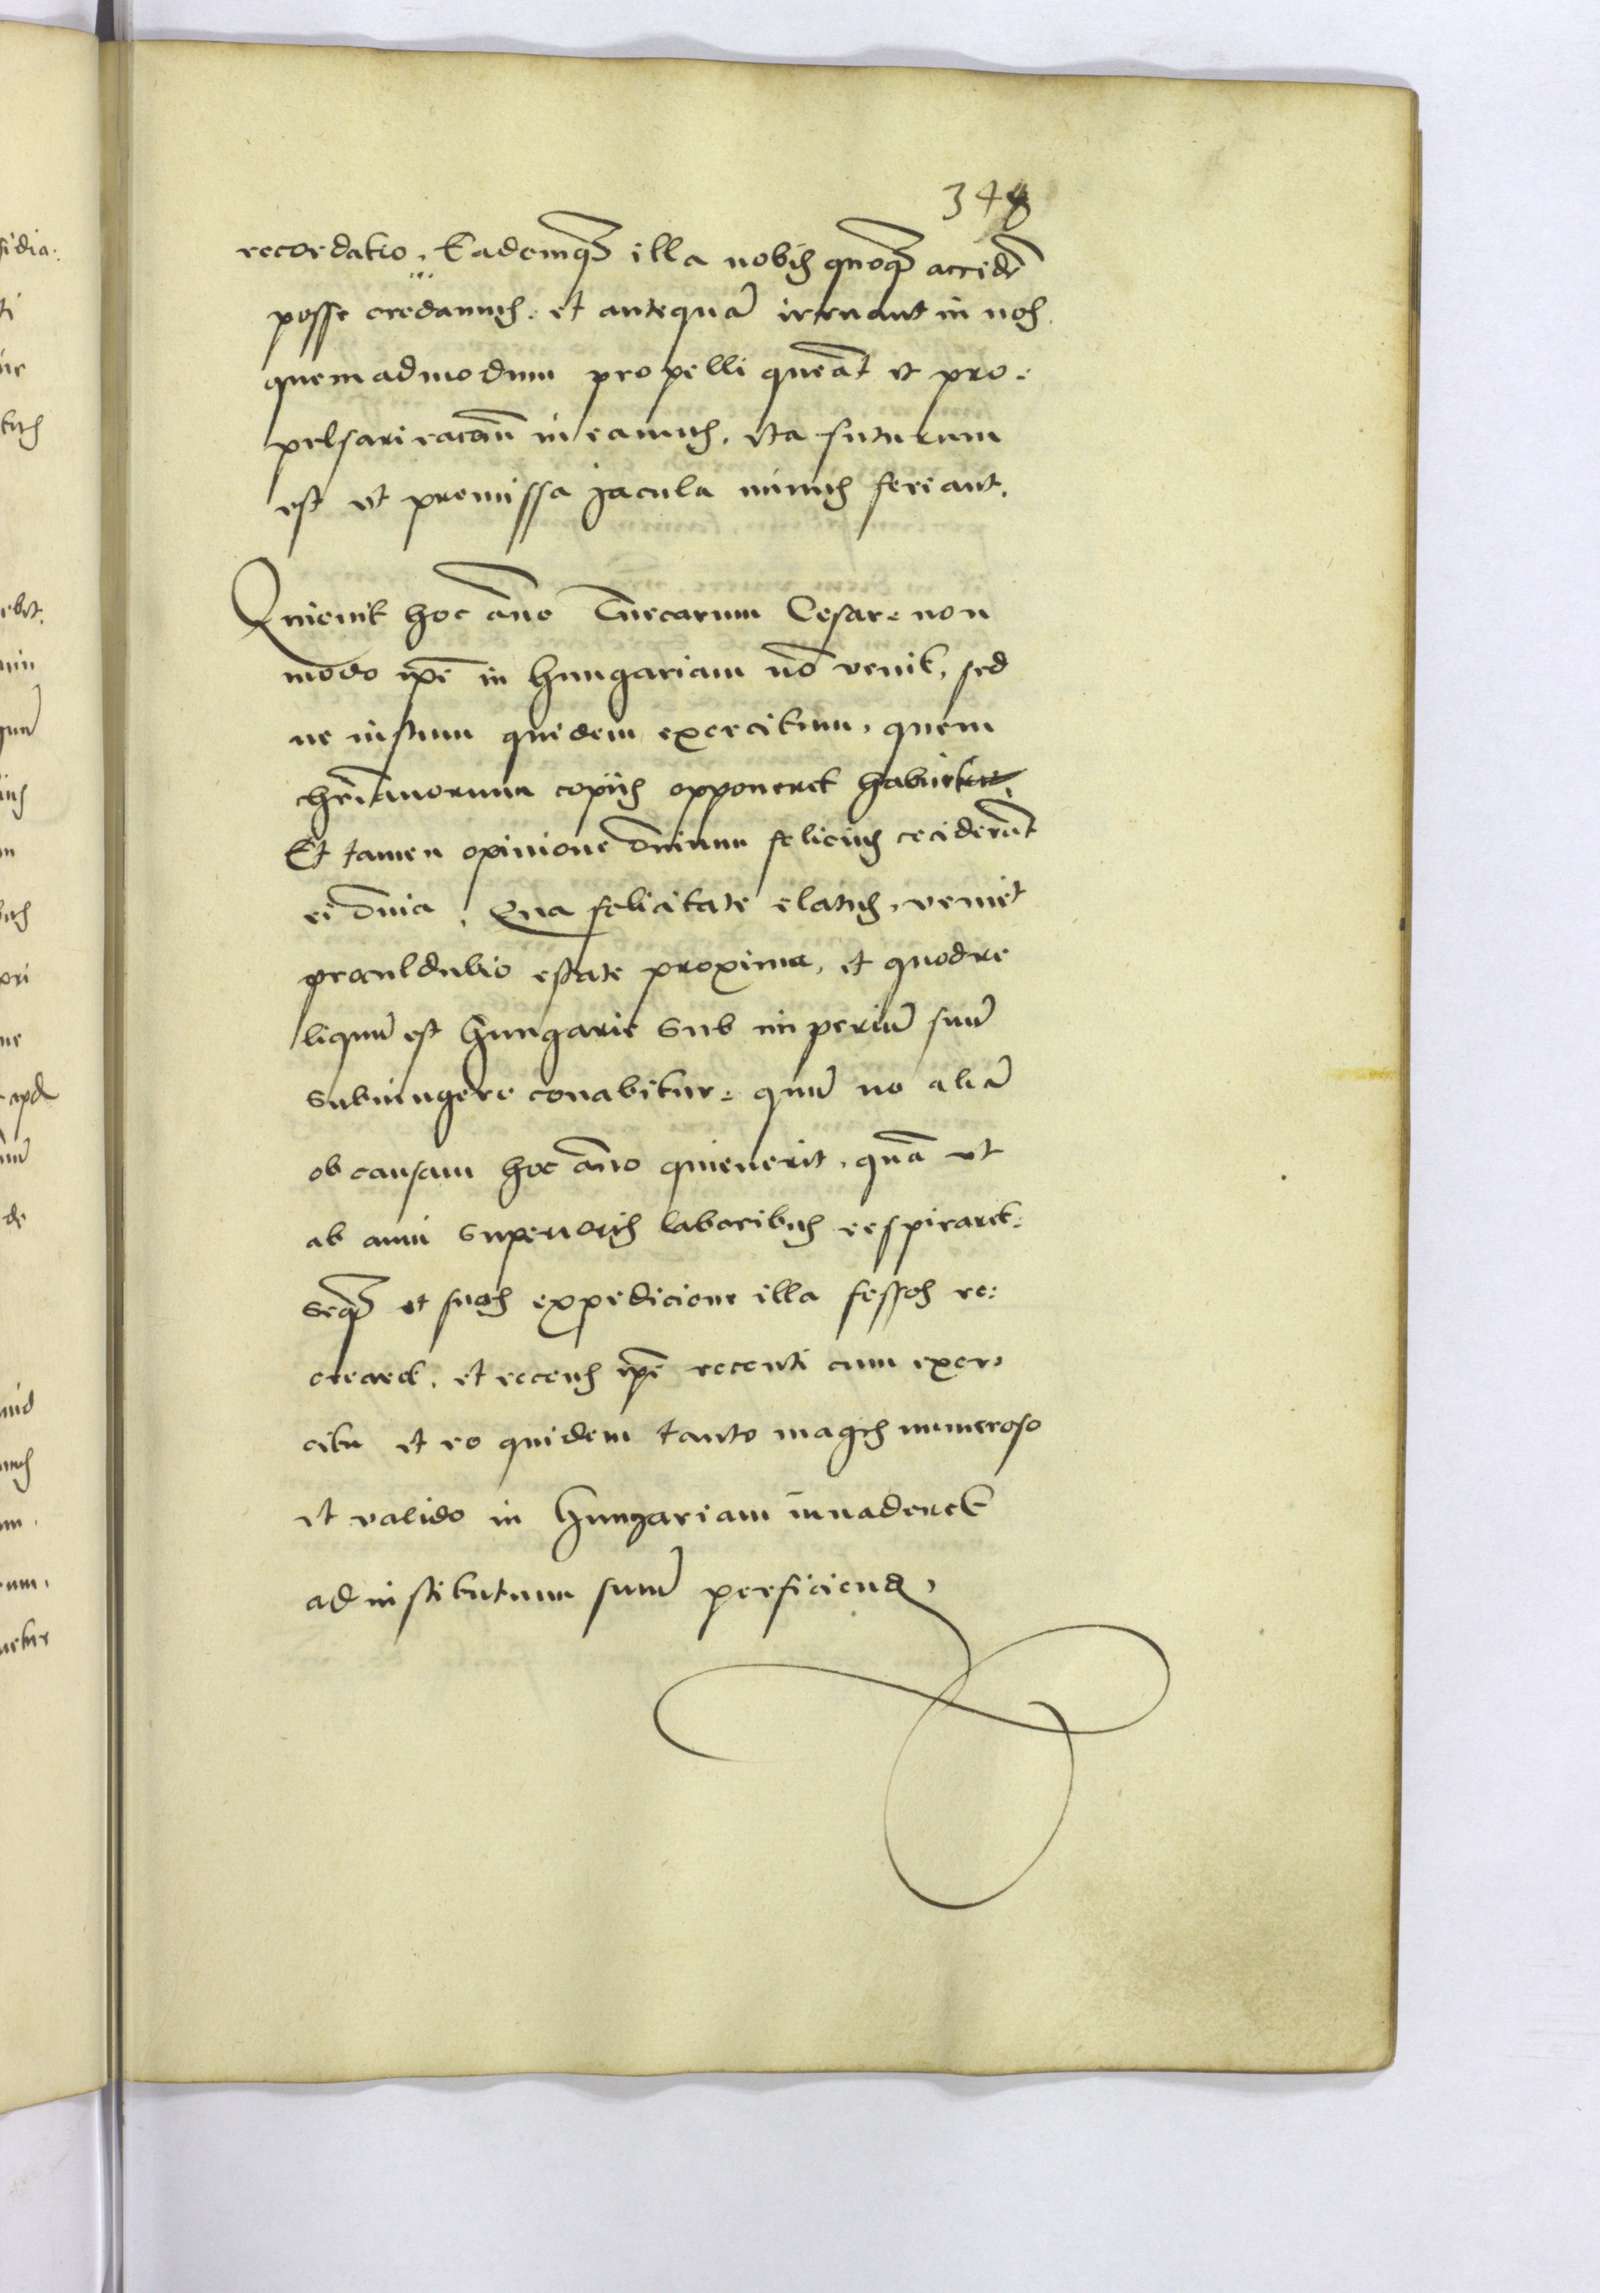 348
recordatio. Eademq̃ illa nobis quoq̃ accidẽ
posse credamus. et antequã irruant in nos.
quemadmodum propelli queãt et pro-
pulsari racõm ineamus. Ita futurum
est ut premissa jacula minus feriant.
Quievit hoc ãno Turcarum Cesar. non
modo ip̃e in Hungariam nõ venit, sed
ne iustum quidem exercitum, quem
chr̃ianorum copiis opponeret habuit
Et tamen opinione õnium felicius ceciderũt
ei õnia. Qua felicitate elatus, veniet
proculdubio estate proxima, et quod re
liquũ est Hungarie sub imperiũ suũ
subiungere conabitur. quũ no aliã
ob causam hoc ãno quieverit, quã ut
ab anni superioris laboribus respiraret.
seq̃ et suos expedicione illa fessos re-
crearet. et recens ip̃e recenti cum exer-
citu et eo quidem tanto magis numeroso
et valido in Hungariam invaderet
ad institutum suũ perficiend